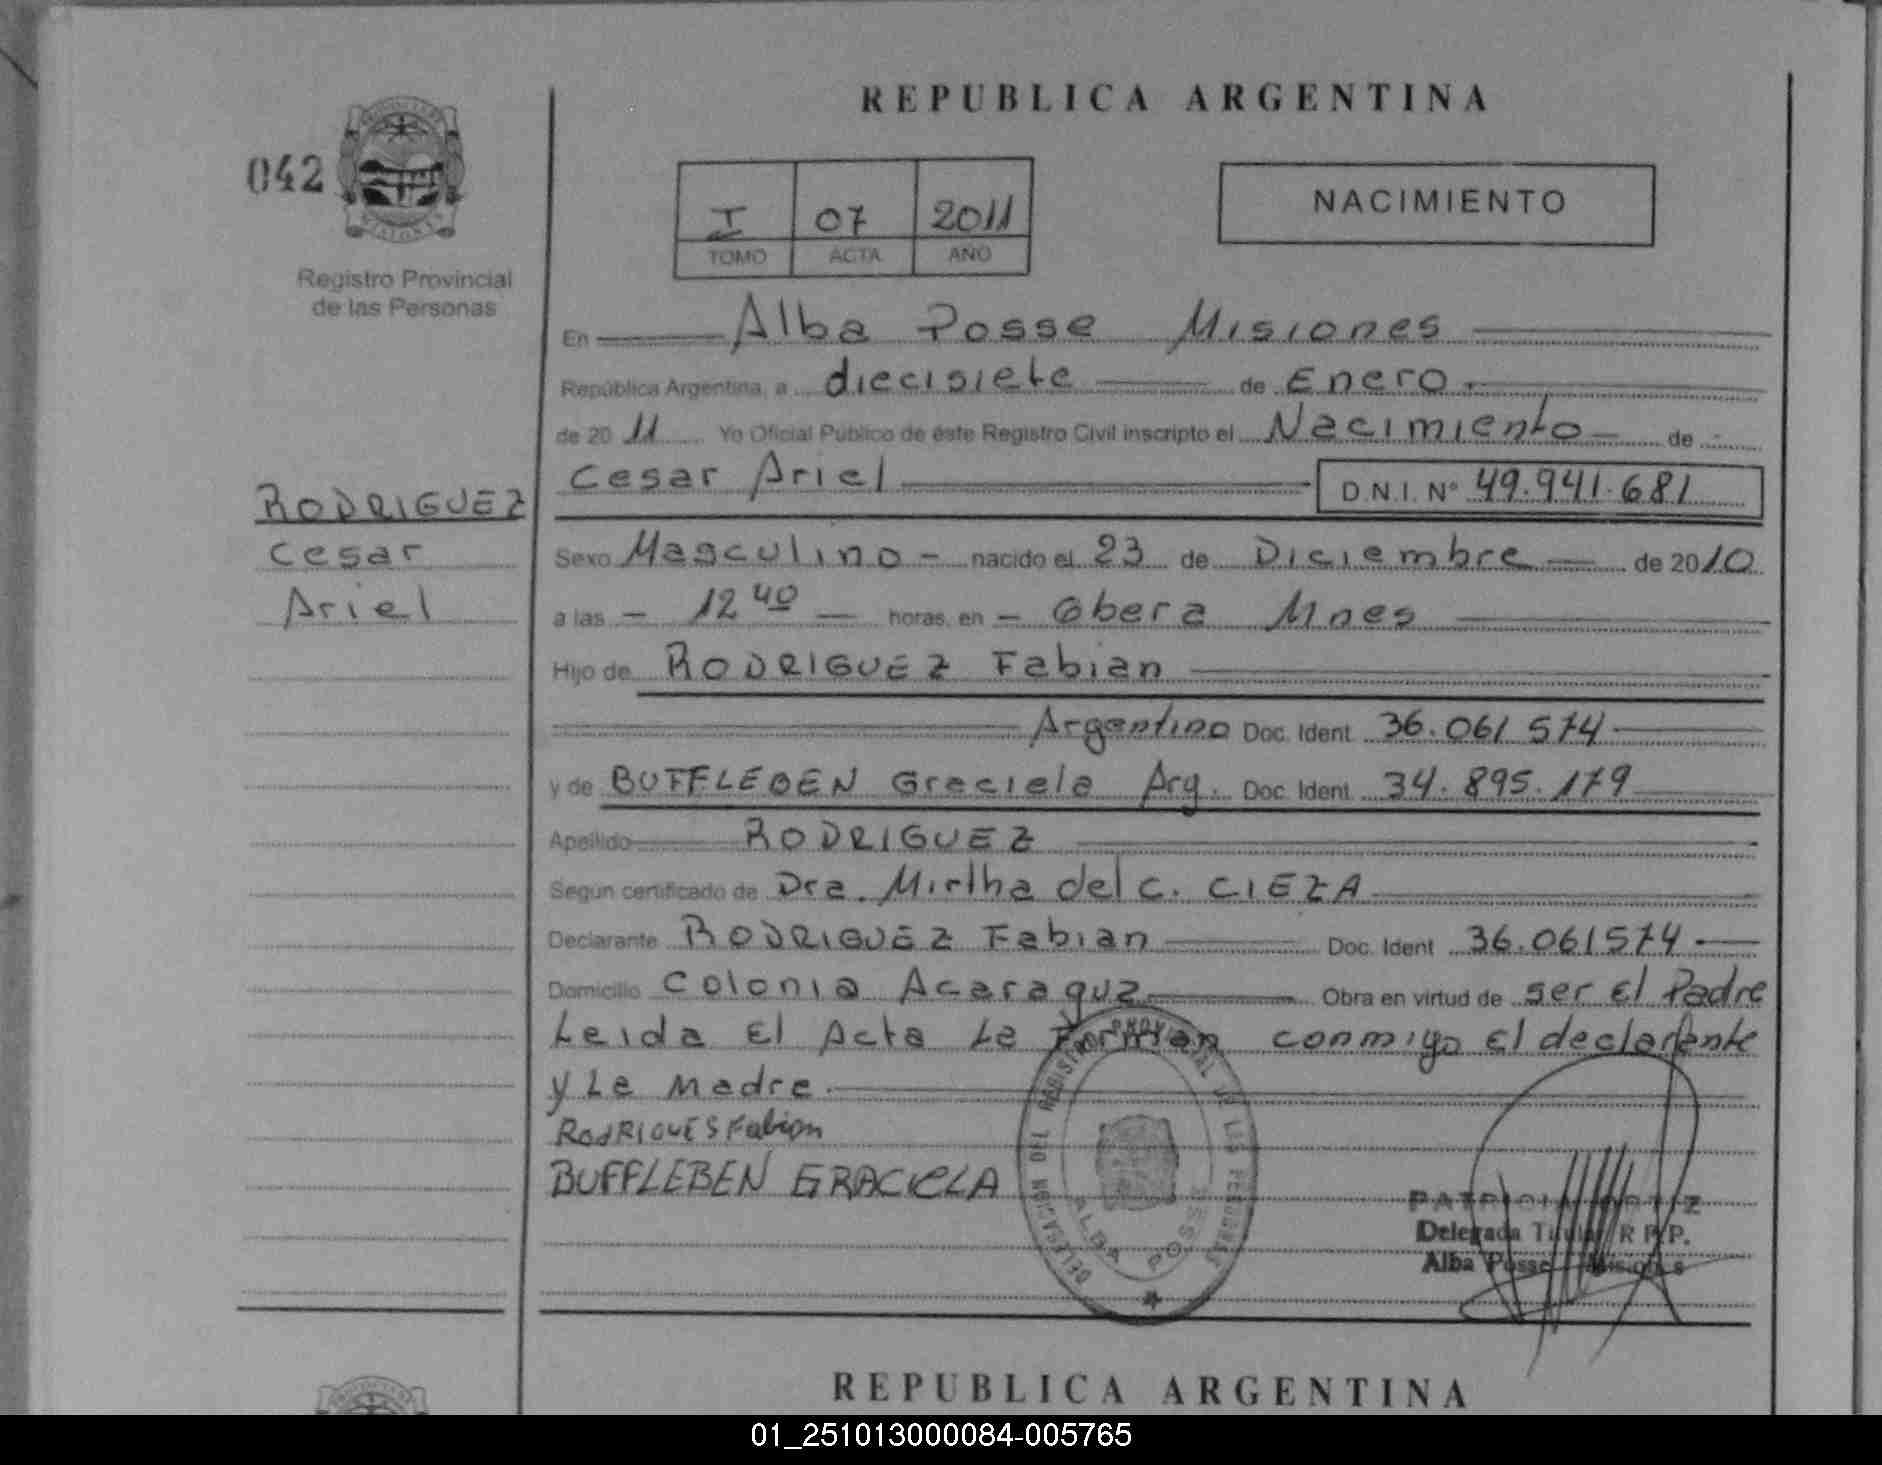 REPUBLICA ARGENTINA
042
I 07 2011
TOMO ACTA AÑO
NACIMIENTO
Registro Provincial
de las Personas
En Alba Posse Misiones
República Argentina, a diecisiete de Enero
de 2011 Yo Oficial Público de éste Registro Civil inscripto el Nacimiento de
Cesar Ariel D.N.I. Nº 49.941.681
RODRIGUEZ
Cesar
Ariel
Sexo Masculino - nacido el 23 de Diciembre de 2010
a las - 12 40 - horas, en - Obera Mnes
Hijo de RODRIGUEZ Fabian
Argentino Doc. Ident. 36.061574
y de BUFFLEBEN Graciela Arg. Doc. Ident. 34.895.179
Apellido RODRIGUEZ
Según certificado de Dra. Mirtha del C. CIEZA
Declarante RODRIGUEZ Fabian Doc. Ident. 36.061574
Domicilio Colonia Acaragua Obra en virtud de ser El Padre
Leida El Acta La Forman conmigo El declarante
y La Madre
RodRIGUES Fabian
BUFFLEBEN GRACIELA
DELEGACION DEL REGISTRO PROVINCIAL DE LAS PERSONAS
ALBA POSSE
PATRICIA ORTIZ
Delegada Titular R.P.P.
Alba Posse - Misiones
REPUBLICA ARGENTINA
01_251013000084-005765